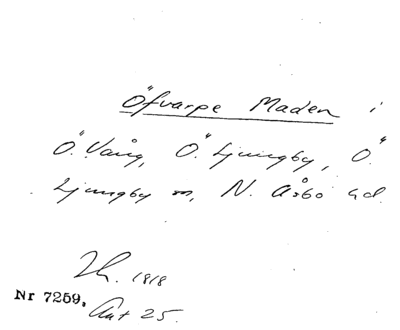 Öfvarpe Maden i
Ö. Vång, Ö. Ljungby, Ö.
Ljungby sn, N. Åsbo hd.
1818
Nr 7259, Akt 25.